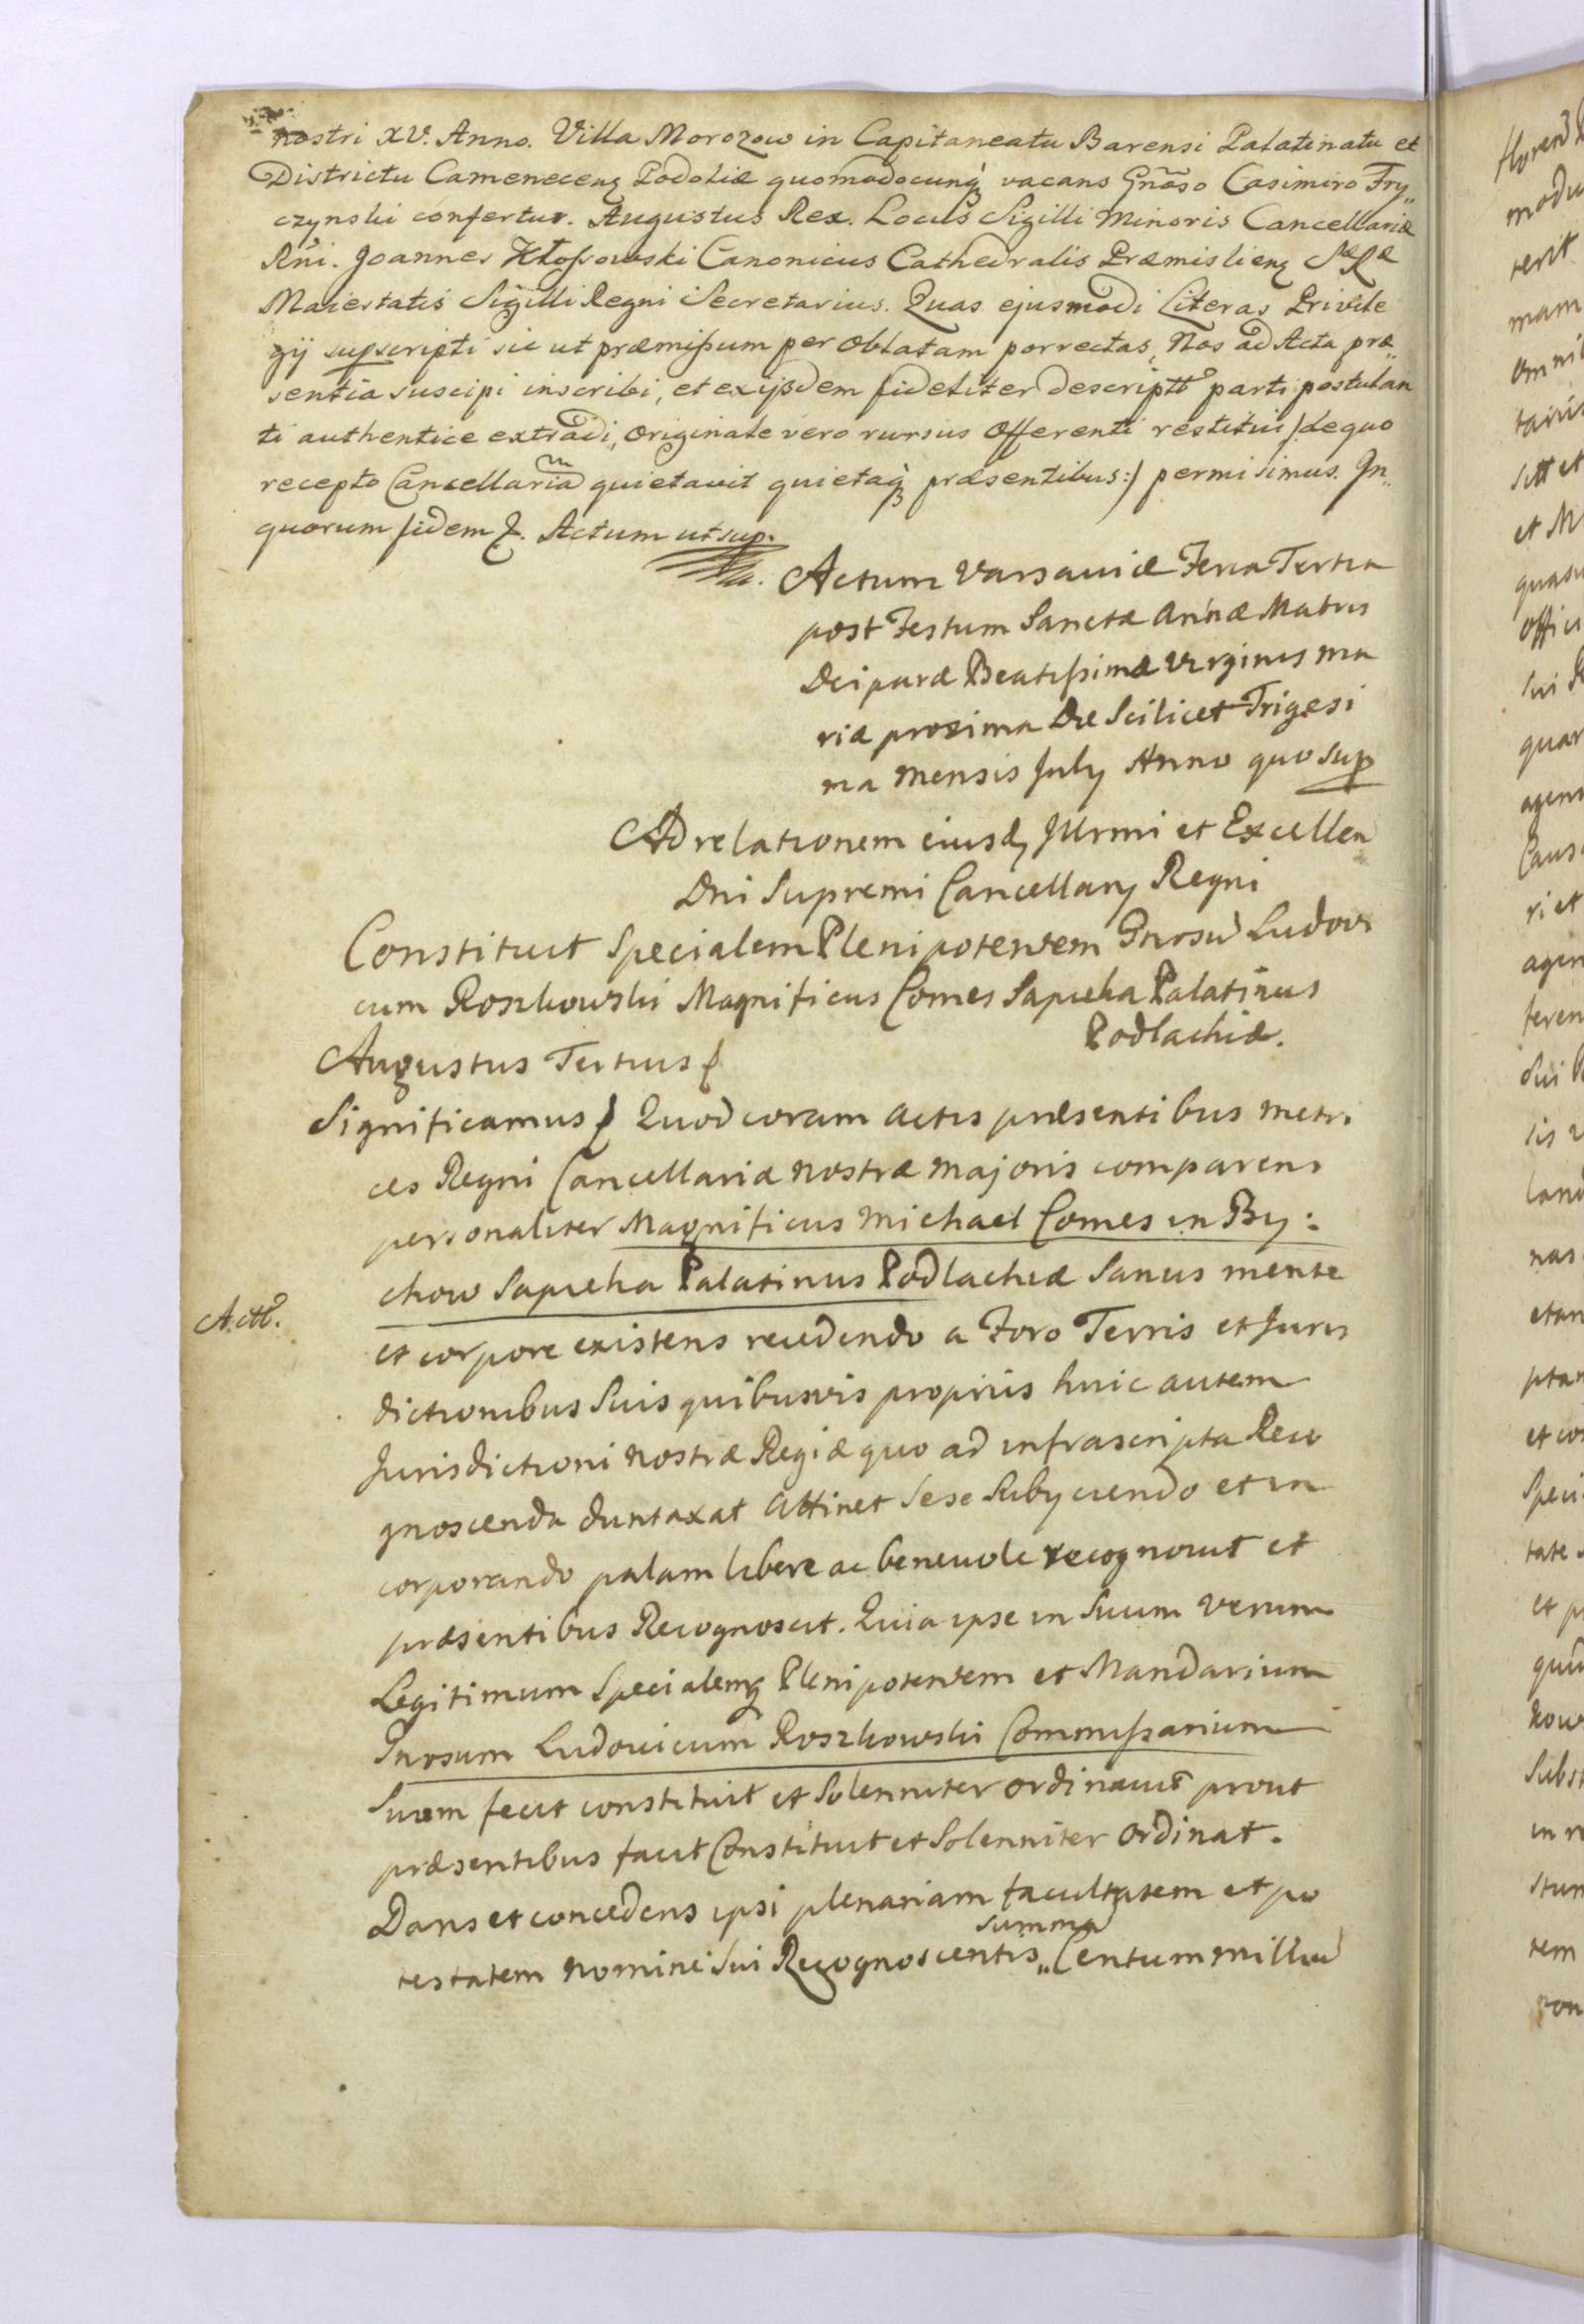 nostri XV. Anno. Villa Morozow in Capitaneatu Barensi Palatinatu et
Districtu Camenecenq Podoliæ quomodocunq̀ vacans Gnõso Casimiro Fry„
czynski confertur. Augustus Rex. Locus Sigilli Minoris Cancellariæ
Rni. Joannes Kłossowski Canonicus Cathedralis Præmislienq Sæ Ræ
Maiestatis Sigilli Regni Secretarius. Quas ejusmodi Literas Privile
gÿ supscripti sic ut præmißum per oblatam porrectas, Nos ad Acta præ„
sentia suscipi inscribi, et ex ijsdem fideliter descriptt̊ parti postulan
ti authentice extradi, originale vero rursus offerenti restitui /: de quo
recepto Cancellariã quietavit quietaq̀ præsentibus :/ permisimus. In„
quorum fidem &. Actum ut sup.
Actum Varsaviæ Feria Tertia
post Festum Sanctæ Annæ Matris
Deiparæ Beatißimæ Virginis Ma
riæ proxima Die Scilicet Trigesi
ma Mensis July Anno quo sup
Ad relationem eiusd, Illrmi et Excellen
Dni Supremi Cancellarij Regni
Constituit Specialem Plenipotentem Gnosũ Ludovi
cum Roszkowski Magnificus Comes Sapieha Palatinus
Podlachiæ.
Augustus Tertius &
Significamus & Quod coram Actis præsentibus Metri
ces Regni Cancellariæ nostræ Majoris comparens
personaliter Magnificus Michael Comes in By:
chow Sapieha Palatinus Podlachiæ Sanus mente
A. Ctt̊.
et corpore existens recedendo a Foro Terris et Juris
dictionibus Suis quibusvis proprijs huic autem
Jurisdictioni nostræ Regiæ quo ad infrascripta Reco
gnoscenda duntaxat attinet Sese Subyciendo et in
corporando palam libere ac benevole recognovit et
præsentibus Recognoscit. Quia ipse in Suum Verum
Legitimum Specialemq Plenipotentem et Mandarium
Gnosum Ludovicum Roszkowski Commißarium
Suum fecit constituit et Solenniter ordinavit prout
præsentibus facit Constituit et Solenniter ordinat.
Dans et concedens ipsi plenariam facultatem et po
testatem nomine Sui Recognoscentis „ summã Centum millia